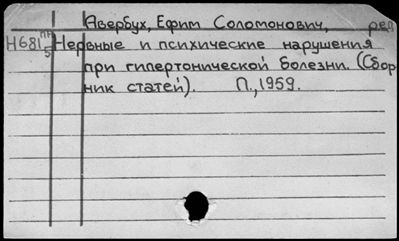 Авербух, Ефим Соломонович, ред
Н681 Нервные и психические нарушения
при гипертонической болезни. (Сбор
ник статей). П., 1959.